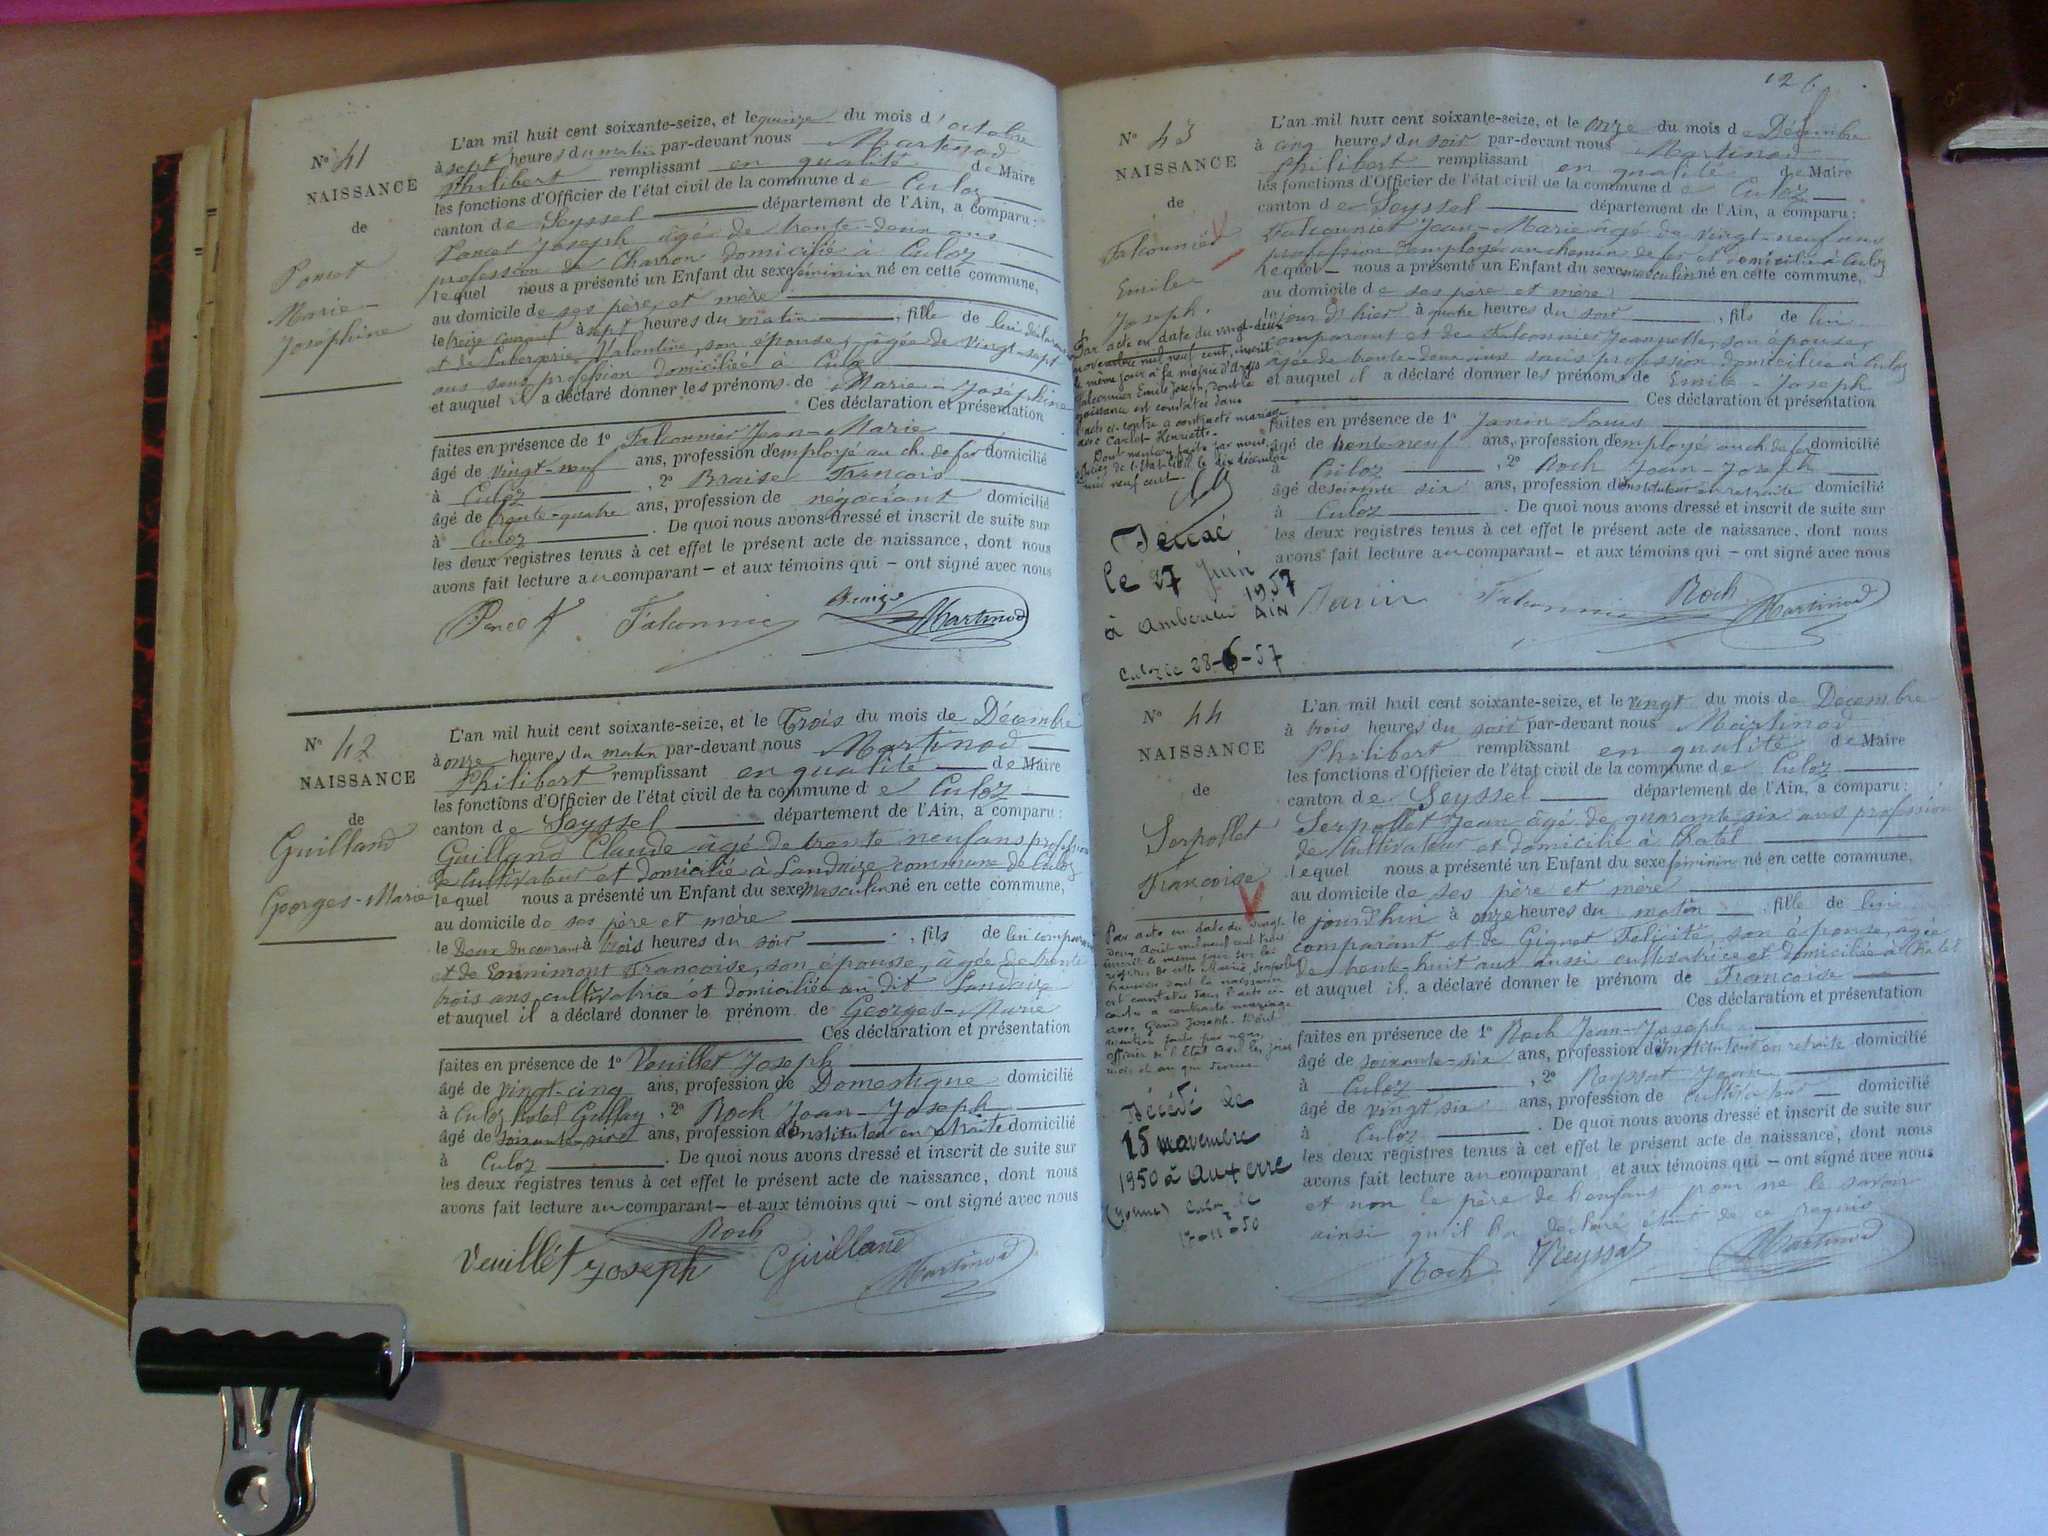 N° 41
NAISSANCE
de
Poncet
Marie-
Joséphine
L'an mil huit cent soixante-seize, et le quinze du mois d'octobre
à sept heures du matin par-devant nous Martinod
Philibert remplissant en qualité de Maire
les fonctions d'Officier de l'état civil de la commune de Culoz
canton de Seyssel département de l'Ain, a comparu:
Poncet Joseph âgé de trente-deux ans
profession de Charron domicilié à Culoz
lequel nous a présenté un Enfant du sexe féminin né en cette commune,
au domicile de ses père et mère
le treize courant à sept heures du matin, fille de lui déclarant
et de Valentine, son épouse, âgée de vingt-sept
ans sans profession domiciliée à Culoz
et auquel il a déclaré donner les prénoms de Marie-Joséphine
Ces déclaration et présentation
faites en présence de 1° Falconnier Jean-Marie
âgé de vingt-neuf ans, profession d'employé au ch. de fer domicilié
à Culoz, 2° Braise François
âgé de trente-quatre ans, profession de négociant domicilié
à Culoz. De quoi nous avons dressé et inscrit de suite sur
les deux registres tenus à cet effet le présent acte de naissance, dont nous
avons fait lecture au comparant – et aux témoins qui – ont signé avec nous
Poncet Falconnier Braize Martinod
N° 42
NAISSANCE
de
Guilland
Georges-Marie
L'an mil huit cent soixante-seize, et le Trois du mois de Décembre
à onze heures du matin par-devant nous Martinod
Philibert remplissant en qualité de Maire
les fonctions d'Officier de l'état civil de la commune de Culoz
canton de Seyssel département de l'Ain, a comparu:
Guilland Claude âgé de trente neuf ans profession
de Cultivateur et domicilié à Landaize commune de Culoz
lequel nous a présenté un Enfant du sexe masculin né en cette commune,
au domicile de ses père et mère
le Deux du courant à trois heures du soir, fils de lui comparant
et de Françoise, son épouse, âgée de trente
trois ans cultivatrice et domiciliée au dit Landaize
et auquel il a déclaré donner le prénom de Georges-Marie
Ces déclaration et présentation
faites en présence de 1° Veuillet Joseph
âgé de vingt-cinq ans, profession de Domestique domicilié
à Culoz hotel, 2° Roch Jean-Joseph
âgé de soixante-six ans, profession d'instituteur en retraite domicilié
à Culoz. De quoi nous avons dressé et inscrit de suite sur
les deux registres tenus à cet effet le présent acte de naissance, dont nous
avons fait lecture au comparant – et aux témoins qui – ont signé avec nous
Roch
Veuillet Joseph Guilland Martinod
126
N° 43
NAISSANCE
de
Falconnier
Emile
Joseph.
Par acte en date du vingt-deux
novembre mil neuf cent, inscrit
le même jour à la mairie d'Argis
Falconnier Emile Joseph, dont la
naissance est constatée dans
l'acte ci-contre a contracté mariage
avec Carlet Henriette.
Dont mention faite par nous,
officier de l'état civil le dix décembre
mil neuf cent.
Décédé
le 27 Juin
1957
à Ambérieu AIN
Culoz le 28-6-57
L'an mil huit cent soixante-seize, et le onze du mois de Décembre
à cinq heures du soir par-devant nous Martinod
Philibert remplissant en qualité de Maire
les fonctions d'Officier de l'état civil de la commune de Culoz
canton de Seyssel département de l'Ain, a comparu:
Falconnier Jean-Marie âgé de vingt-neuf ans
profession d'employé au chemin de fer et domicilié à Culoz
lequel – nous a présenté un Enfant du sexe masculin né en cette commune,
au domicile de ses père et mère
le jour d'hier à quatre heures du soir, fils de lui
comparant et de Falconnier Jeannette, son épouse,
âgée de trente-deux ans sans profession domiciliée à Culoz
et auquel il a déclaré donner les prénoms de Emile-Joseph
Ces déclaration et présentation
faites en présence de 1° Janin Louis
âgé de trente-neuf ans, profession d'employé au ch. de fer domicilié
à Culoz, 2° Roch Jean-Joseph
âgé de soixante six ans, profession d'instituteur en retraite domicilié
à Culoz. De quoi nous avons dressé et inscrit de suite sur
les deux registres tenus à cet effet le présent acte de naissance, dont nous
avons fait lecture au comparant – et aux témoins qui – ont signé avec nous
Janin Falconnier Roch Martinod
N° 44
NAISSANCE
de
Serpollet
Françoise
Par acte en date du vingt-
deux Août mil neuf cent trois
inscrit le même jour sur les
registres de cette Mairie, Serpollet
Françoise dont la naissance
est constatée dans l'acte ci-
contre a contracté mariage
avec Joseph. Dont
mention faite par nous,
officier de l'Etat civil les jour
mois et an que dessus
Décédé le
15 novembre
1950 à Auxerre
(Yonne) Culoz le
17-11-50
L'an mil huit cent soixante-seize, et le vingt du mois de Décembre
à trois heures du soir par-devant nous Martinod
Philibert remplissant en qualité de Maire
les fonctions d'Officier de l'état civil de la commune de Culoz
canton de Seyssel département de l'Ain, a comparu:
Serpollet Jean âgé de quarante six ans profession
de Cultivateur et domicilié à Chatel
lequel nous a présenté un Enfant du sexe féminin né en cette commune,
au domicile de ses père et mère
le jourd'hui à onze heures du matin, fille de lui
comparant et de Gignet Félicité, son épouse, agée
de trente-huit ans aussi cultivatrice et domiciliée à Chatel
et auquel il a déclaré donner le prénom de Françoise
Ces déclaration et présentation
faites en présence de 1° Roch Jean-Joseph
âgé de soixante-six ans, profession d'instituteur en retraite domicilié
à Culoz, 2° Reyssat Jean
âgé de vingt six ans, profession de cultivateur domicilié
à Culoz. De quoi nous avons dressé et inscrit de suite sur
les deux registres tenus à cet effet le présent acte de naissance, dont nous
avons fait lecture au comparant, et aux témoins qui – ont signé avec nous
et non le père de l'enfant pour ne le savoir
ainsi qu'il l'a déclaré étant de ce requis
Roch Reyssat Martinod